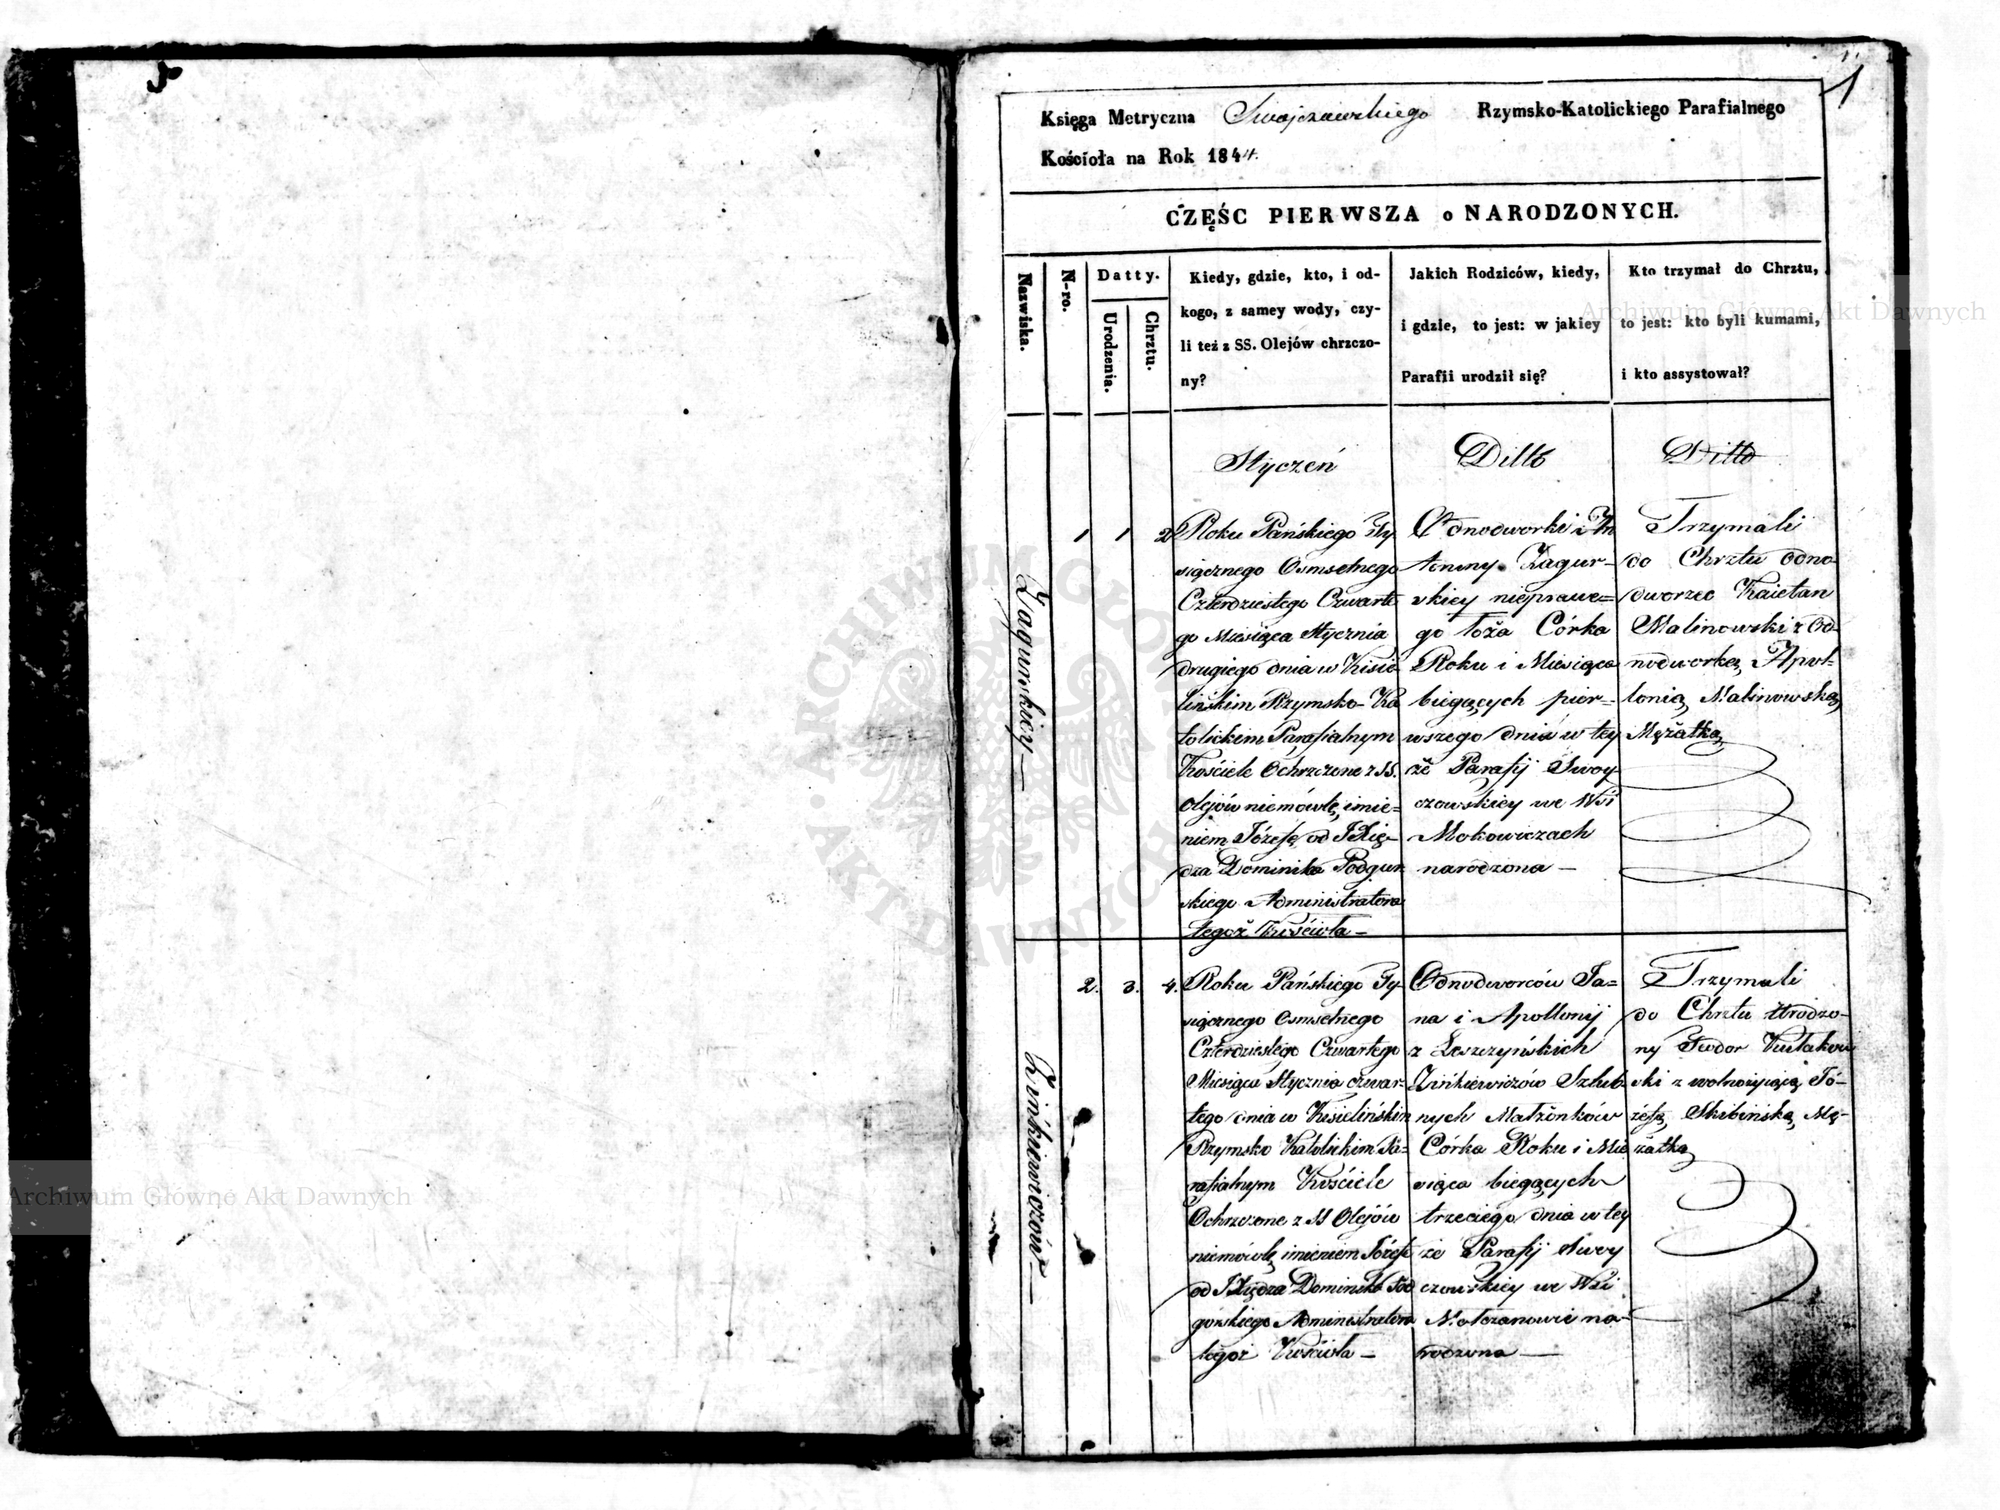 1
Księga Metryczna Swojczowskiego Rzymsko-Katolickiego Parafialnego
Kościoła na Rok 1844.
CZĘŚC PIERWSZA o NARODZONYCH.
Nazwiska.
N-ro.
Datty.
Urodzenia.
Chrztu.
Kiedy, gdzie, kto, i od-
kogo, z samey wody, czy-
li też z SS. Olejów chrzczo-
ny?
Jakich Rodziców, kiedy,
i gdzie, to jest: w jakiey
Parafii urodził się?
Kto trzymał do Chrztu,
to jest: kto byli kumami,
i kto assystował?
Styczeń
Ditto
Ditto
Zagurskiey
1
1
2
Roku Pańskiego Ty
siącznego Osmsetnego
Czterdziestego Czwarte
go Miesiąca Stycznia
drugiego dnia w Kisie
lińskim Rzymsko-Ka
tolickim Parafialnym
Kościele Ochrzczone z SS.
Olejów niemówlę, imie=
niem Józefa, od JXię-
dza Dominika Podgur
skiego Administratora
tegoż Kościoła
Odnodworki An
toniny Zagur-
skiey nieprawe=
go łoża Córka
Roku i Miesiąca
biegących pier-
wszego dnia w tey
że Parafij Swoy
czowskiey we Wsi
Mokowiczach
narodzona
Trzymali
do Chrztu odno-
dworzec Kaietan
Malinowski z Od-
nodworką Apol-
lonią Malinowską
Mężatką
Zinkiewiczów
2.
3.
4.
Roku Pańskiego Ty-
siącznego Osmsetnego
Czterdziestego Czwartego
Miesiąca Stycznia czwar-
tego dnia w Kisielińskim
Rzymsko Katolickim Pa=
rafialnym Kościele
Ochrzczone z SS Olejów
niemówlę imieniem Józefa
od JXiędza Dominika Pod
górskiego Administratora
tegoż Kościoła
Odnodworców Ja=
na i Apollonij
z Leszczyńskich
Zińkiewiczów Szlub
nych Małżonków
Córka Roku i Mie
siąca biegących
trzeciego dnia w tey
że Parafij Swoy
czowskiey we Wsi
na-
rodzona
Trzymali
do Chrztu Urodzo-
ny Fedor Kułakow
ski z wolnożyiącą Jó-
zefą Skibińską Mę-
żatką
Archiwum Główne Akt Dawnych
Archiwum Główne Akt Dawnych
ARCHIWUM GŁÓWNE AKT DAWNYCH